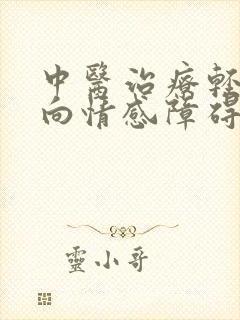 中醫治療輕
向情感障碍
靈小哥